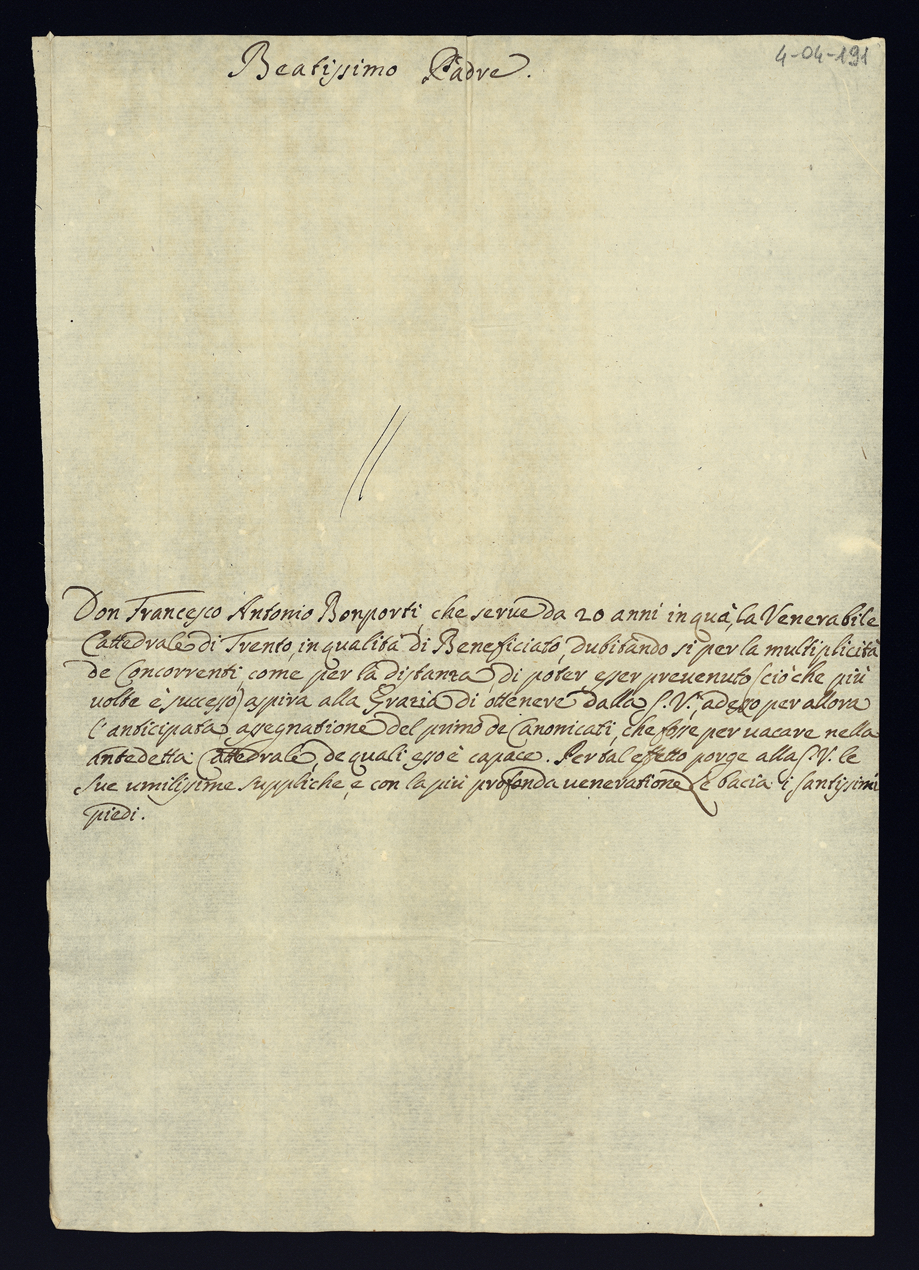 4-04-191
Beatissimo Padre.
Don Francesco Antonio Bonporti, che serue da 20 anni in quà, la Venerabile
Cattedrale di Trento, in qualità di Beneficiato, dubitando si per la multiplicità
de Concorrenti, come per la distanza di poter esser prevenuto (ciò che più
volte è successo) aspira alla Grazia di ottenere dalla S. V. adesso per allora
l'anticipata assegnatione del primo de Canonicati, che fosse per uacare nella
antedetta Cattedrale, de quali esso è capace. Per tal effetto porge alla S. V. le
sue umilissime suppliche, e con la più profonda ueneratione Le bacia i santissimi
piedi.